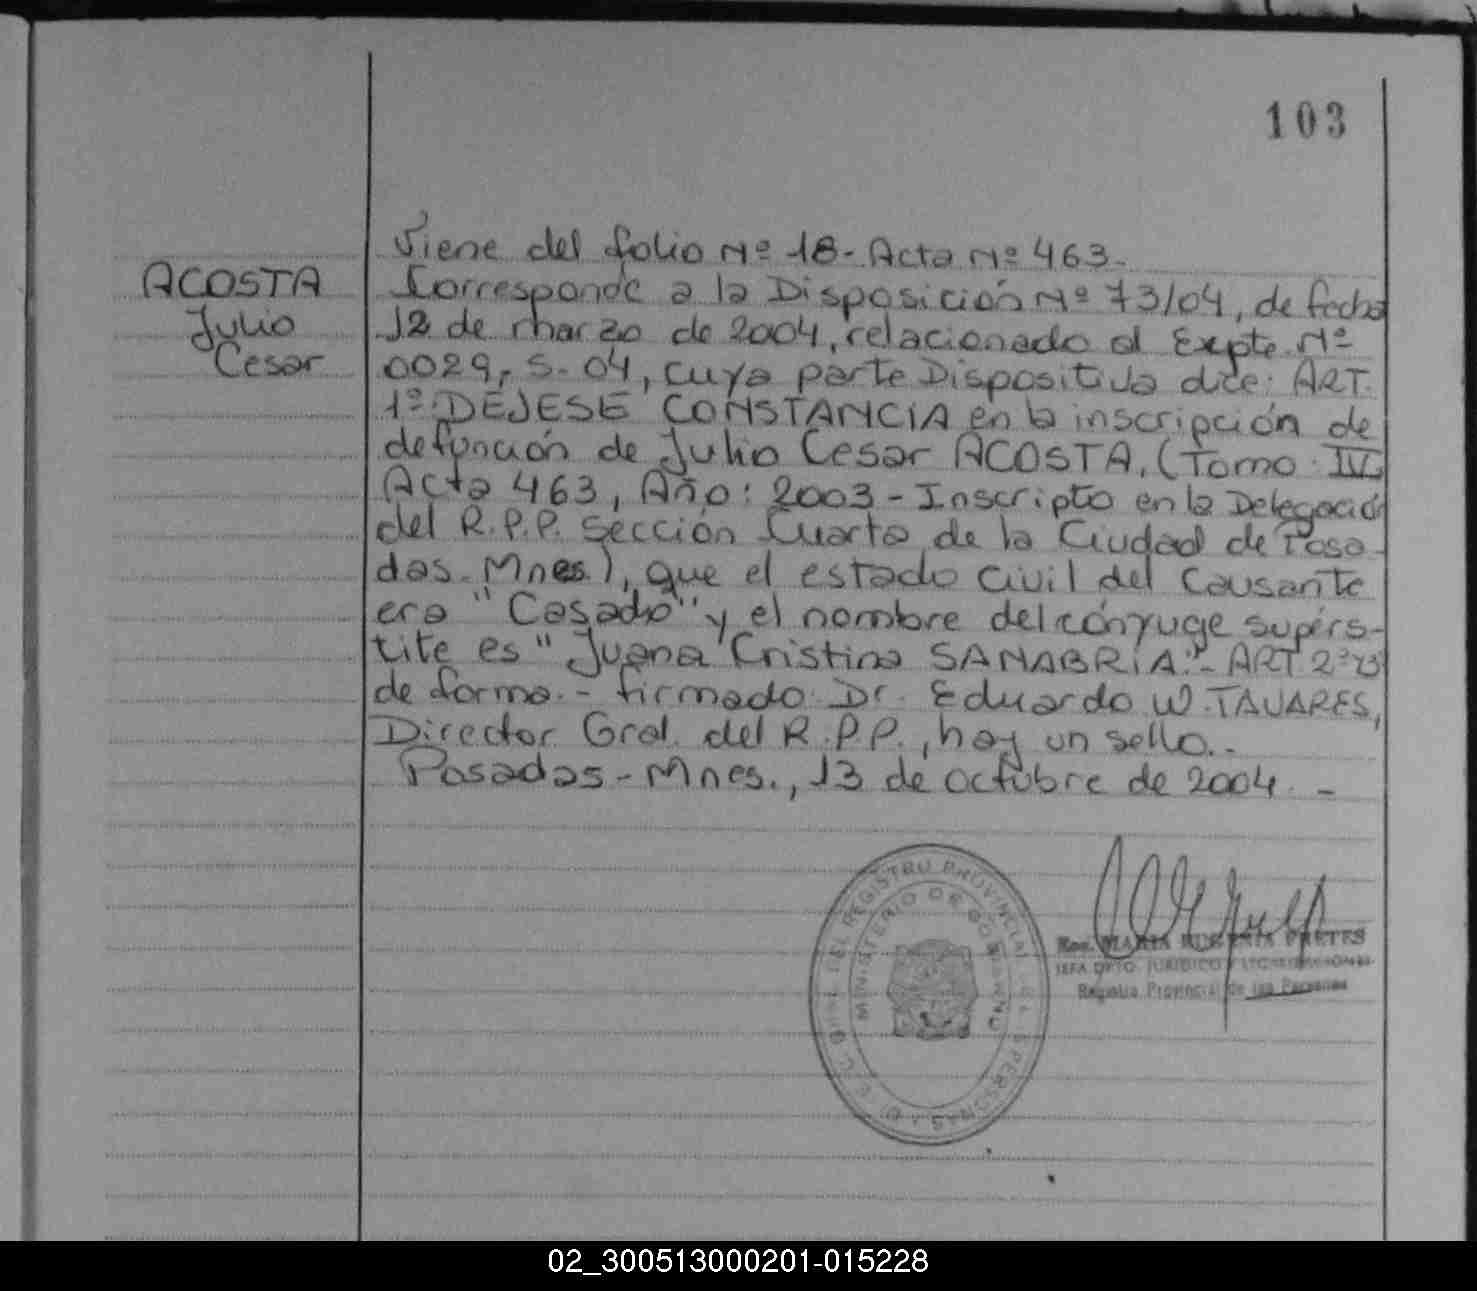 103
ACOSTA
Julio
Cesar
Viene del folio Nº 18 - Acta Nº 463.-
Corresponde a la Disposición Nº 73/04, de fecha
12 de marzo de 2004, relacionado al Expte. Nº
0029, S. 04, cuya parte Dispositiva dice: ART.
1º DEJESE CONSTANCIA en la inscripción de
defunción de Julio Cesar ACOSTA, (Tomo: IV
Acta 463, Año: 2003 - Inscripto en la Delegación
del R.P.P. Sección Cuarta de la Ciudad de Posa-
das - Mnes.), que el estado civil del causante
era "Casado" y el nombre del cónyuge supérs-
tite es "Juana Cristina SANABRIA".- ART. 2º
de forma.- firmado: Dr. Eduardo W. TAVARES,
Director Gral. del R.P.P., hay un sello.-
Posadas - Mnes., 13 de octubre de 2004. -
REGISTRO PROVINCIAL DE LAS PERSONAS
MINISTERIO DE GOBIERNO
MARIA EUGENIA
JEFA DPTO. JURIDICO Y
Registro Provincial de las Personas
02_300513000201-015228